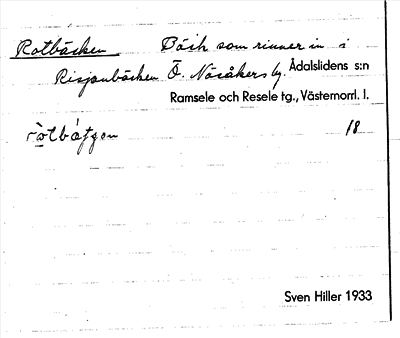 Rotbäcken Bäck som rinner in i
Risjanbäcken Ö. Näsåkers by. Ådalslidens s:n
Ramsele och Resele tg., Västernorrl. l.
ròtbátjen 18
Sven Hiller 1933